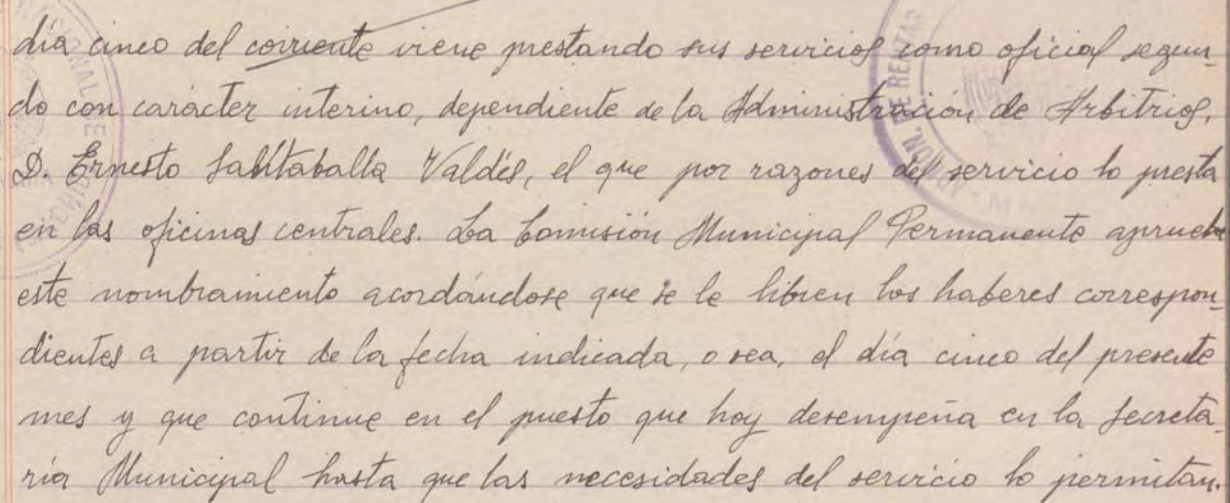 día cinco del corriente viene prestando sus servicios como oficial segun-
do con carácter interino, dependiente de la Administración de Arbitrios,
D. Ernesto Valdés, el que por razones del servicio lo presta
en las oficinas centrales. La Comisión Municipal Permanente aprueba
este nombramiento acordándose que se le libren los haberes correspon-
dientes a partir de la fecha indicada, o sea, el día cinco del presente
mes y que continue en el puesto que hoy desempeña en la Secreta-
ría Municipal hasta que las necesidades del servicio lo permitan.
DE RENTAS